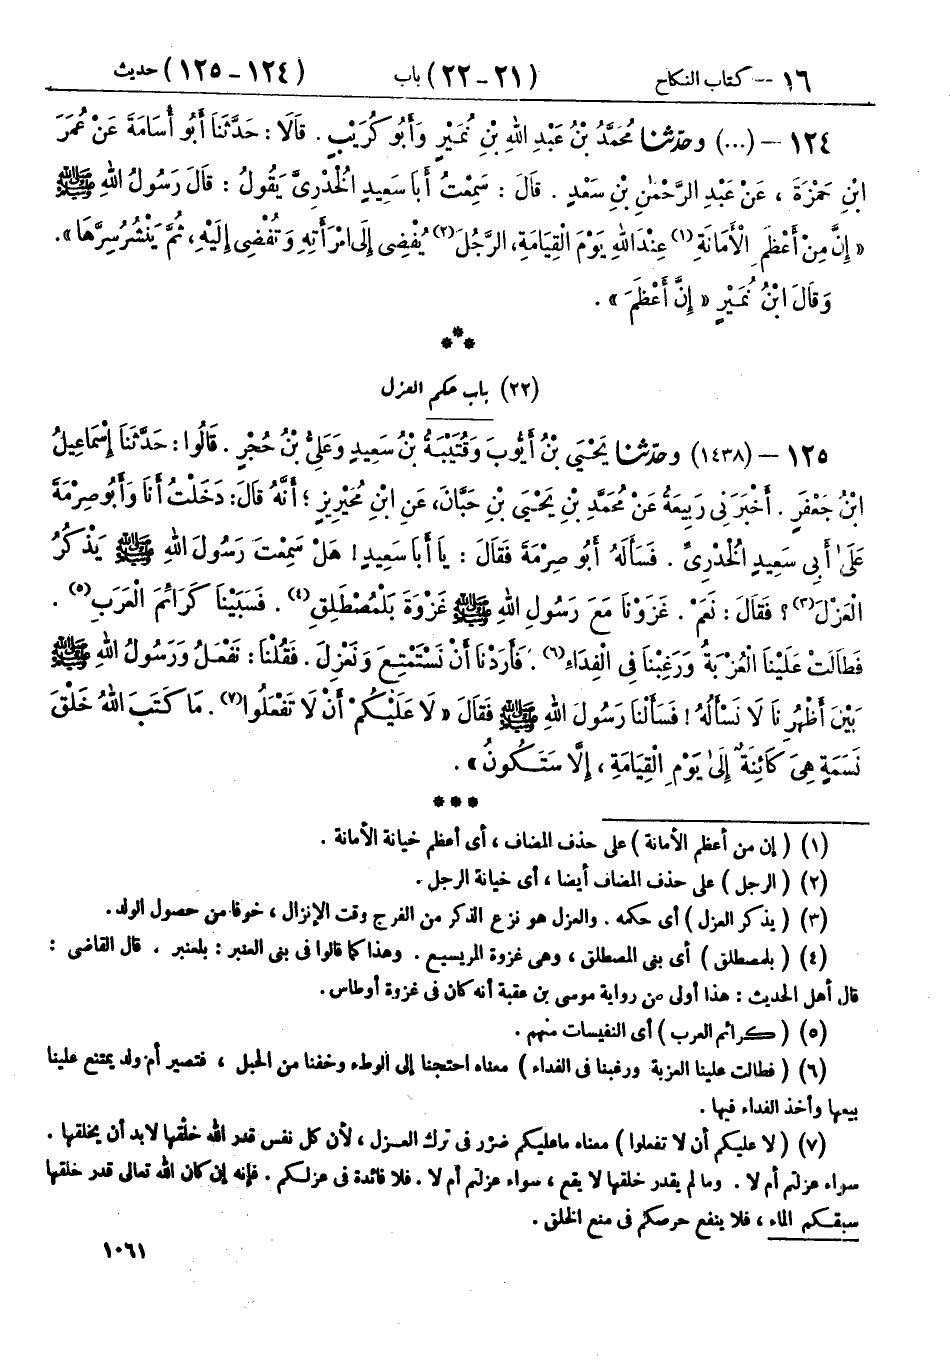 ١٦ -- كتاب النكاح (٢١-٢٢) باب (١٢٤-١٢٥) حديث
١٢٤ – (...) وحدّثنا مُحَمَّدُ بْنُ عَبْدِ اللهِ بْنِ نُمَيْرٍ وَأَبُو كُرَيْبٍ . قَالَا : حَدَّثَنَا أَبُو أُسَامَةَ عَنْ عُمَرَ
ابْنِ حَمْزَةَ ، عَنْ عَبْدِ الرَّحْمٰنِ بْنِ سَعْدٍ . قَالَ : سَمِعْتُ أَبَا سَعِيدٍ الْخُدْرِىَّ يَقُولُ : قَالَ رَسُولُ اللهِ ﷺ
« إِنَّ مِنْ أَعْظَمِ الْأَمَانَةِ(١) عِنْدَ اللهِ يَوْمَ الْقِيَامَةِ، الرَّجُلَ(٢) يُفْضِى إِلَى امْرَأَتِهِ وَتُفْضِى إِلَيْهِ، ثُمَّ يَنْشُرُ سِرَّهَا ».
وَقَالَ ابْنُ نُمَيْرٍ « إِنَّ أَعْظَمَ » .
***
(٢٢) باب حكم العزل
١٢٥ – (١٤٣٨) وحدّثنا يَحْيَى بْنُ أَيُّوبَ وَقُتَيْبَةُ بْنُ سَعِيدٍ وَعَلِىُّ بْنُ حُجْرٍ . قَالُوا : حَدَّثَنَا إِسْمَاعِيلُ
ابْنُ جَعْفَرٍ . أَخْبَرَنِى رَبِيعَةُ عَنْ مُحَمَّدِ بْنِ يَحْيَى بْنِ حَبَّانَ، عَنِ ابْنِ مُحَيْرِيزٍ ؛ أَنَّهُ قَالَ: دَخَلْتُ أَنَا وَأَبُو صِرْمَةَ
عَلَىٰ أَبِى سَعِيدٍ الْخُدْرِىِّ . فَسَأَلَهُ أَبُو صِرْمَةَ فَقَالَ : يَا أَبَا سَعِيدٍ! هَلْ سَمِعْتَ رَسُولَ اللهِ ﷺ يَذْكُرُ
الْعَزْلَ(٣) ؟ فَقَالَ : نَعَمْ . غَزَوْنَا مَعَ رَسُولِ اللهِ ﷺ غَزْوَةَ بَلْمُصْطَلِقِ(٤) . فَسَبَيْنَا كَرَائِمَ الْعَرَبِ(٥) .
فَطَالَتْ عَلَيْنَا الْعُزْبَةُ وَرَغِبْنَا فِى الْفِدَاءِ(٦) . فَأَرَدْنَا أَنْ نَسْتَمْتِعَ وَنَعْزِلَ . فَقُلْنَا: نَفْعَلُ وَرَسُولُ اللهِ ﷺ
بَيْنَ أَظْهُرِنَا لَا نَسْأَلُهُ ! فَسَأَلْنَا رَسُولَ اللهِ ﷺ فَقَالَ « لَا عَلَيْكُمْ أَنْ لَا تَفْعَلُوا(٧) . مَا كَتَبَ اللهُ خَلْقَ
نَسَمَةٍ هِىَ كَائِنَةٌ إِلَىٰ يَوْمِ الْقِيَامَةِ ، إِلَّا سَتَكُونُ » .
***
(١) ( إن من أعظم الأمانة ) على حذف المضاف ، أى أعظم خيانة الأمانة .
(٢) ( الرجل ) على حذف المضاف أيضا ، أى خيانة الرجل .
(٣) ( يذكر العزل ) أى حكمه . والعزل هو نزع الذكر من الفرج وقت الإنزال ، خوفا من حصول الولد .
(٤) ( بلمصطلق ) أى بنى المصطلق ، وهى غزوة المريسيع . وهذا كما قالوا فى بنى العنبر : بلعنبر . قال القاضى :
قال أهل الحديث : هذا أولى من رواية موسى بن عقبة أنه كان فى غزوة أوطاس .
(٥) ( كرائم العرب ) أى النفيسات منهم .
(٦) ( فطالت علينا العزبة ورغبنا فى الفداء ) معناه احتجنا إلى الوطء وخفنا من الحبل ، فتصير أم ولد يمتنع علينا
بيعها وأخذ الفداء فيها .
(٧) ( لا عليكم أن لا تفعلوا ) معناه ماعليكم ضرر فى ترك العزل ، لأن كل نفس قدر الله خلْقها لابد أن يخلقها .
سواء عزلتم أم لا . وما لم يقدر خلقها لا يقع ، سواء عزلتم أم لا . فلا فائدة فى عزلكم . فإنه إن كان الله تعالى قدر خلقها
سبقكم الماء ، فلا ينفع حرصكم فى منع الخلق .
١٠٦١